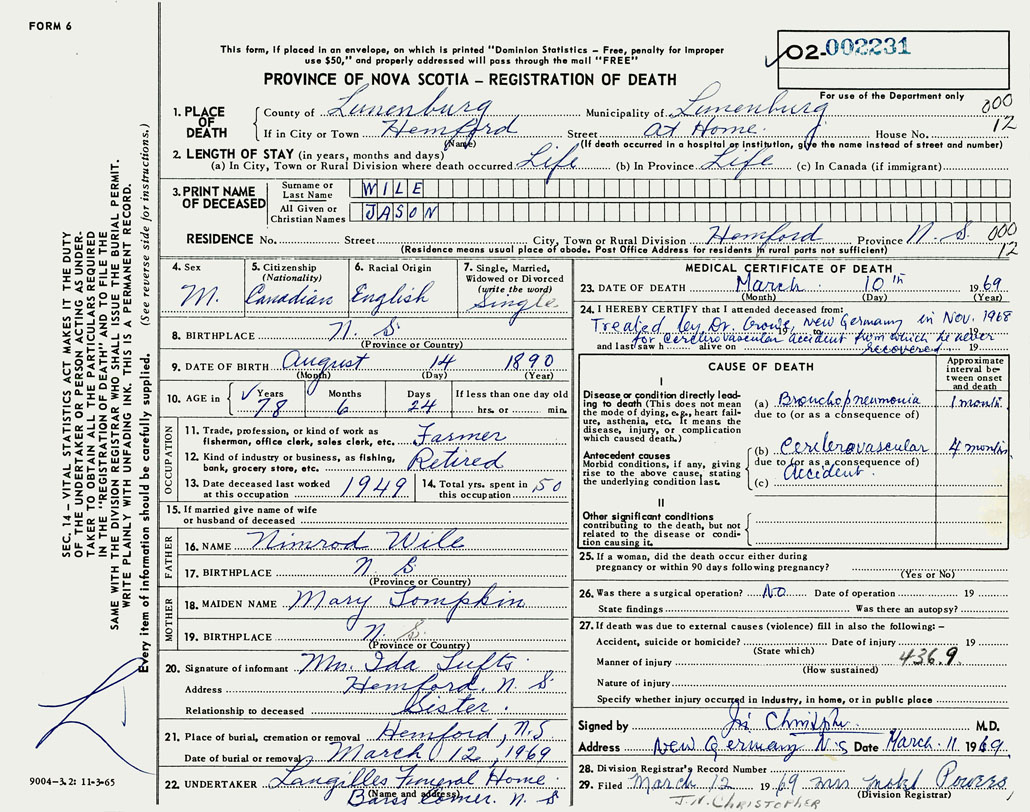 FORM 6
This form, if placed in an envelope, on which is printed "Dominion Statistics – Free, penalty for improper
use $50," and properly addressed will pass through the mail "FREE"
PROVINCE OF NOVA SCOTIA – REGISTRATION OF DEATH
02-002231
For use of the Department only
000
12
1. PLACE OF DEATH
County of Lunenburg Municipality of Lunenburg
If in City or Town Hemford Street At Home. House No.
(Name) (If death occurred in a hospital or institution, give the name instead of street and number)
2. LENGTH OF STAY (in years, months and days)
(a) In City, Town or Rural Division where death occurred Life (b) In Province Life (c) In Canada (if immigrant)
3. PRINT NAME OF DECEASED
Surname or Last Name WILE
All Given or Christian Names JASON
RESIDENCE No. Street City, Town or Rural Division Hemford Province N. S. 000
12
(Residence means usual place of abode. Post Office Address for residents in rural parts not sufficient)
4. Sex M.
5. Citizenship (Nationality) Canadian
6. Racial Origin English
7. Single, Married, Widowed or Divorced (write the word) Single
8. BIRTHPLACE N. S
(Province or Country)
9. DATE OF BIRTH August 14 1890
(Month) (Day) (Year)
10. AGE in Years 78 Months 6 Days 24 If less than one day old hrs. or min.
OCCUPATION
11. Trade, profession, or kind of work as fisherman, office clerk, sales clerk, etc. Farmer
12. Kind of industry or business, as fishing, bank, grocery store, etc. Retired
13. Date deceased last worked at this occupation 1949
14. Total yrs. spent in this occupation 50
15. If married give name of wife or husband of deceased
FATHER
16. NAME Nimrod Wile
17. BIRTHPLACE N. S
(Province or Country)
MOTHER
18. MAIDEN NAME Mary Tompkin
19. BIRTHPLACE N. S.
(Province or Country)
20. Signature of informant Mrs. Ida Tufts.
Address Hemford. N. S
Relationship to deceased Sister.
21. Place of burial, cremation or removal Hemford, N.S
Date of burial or removal March 12, 1969
22. UNDERTAKER Langilles Funeral Home.
(Name and address) Barss Corner. N. S
MEDICAL CERTIFICATE OF DEATH
23. DATE OF DEATH March 10th 1969
(Month) (Day) (Year)
24. I HEREBY CERTIFY that I attended deceased from:
Treated by Dr. New Germany in Nov. 1968
19 to 19
for cerebrovascular accident from which he never
and last saw h alive on 19
recovered
CAUSE OF DEATH
Approximate interval between onset and death
I
Disease or condition directly leading to death (This does not mean the mode of dying, e.g., heart failure, asthenia, etc. It means the disease, injury, or complication which caused death.)
(a) Bronchopneumonia 1 month
due to (or as a consequence of)
Antecedent causes
Morbid conditions, if any, giving rise to the above cause, stating the underlying condition last.
(b) Cerebrovascular 4 months
due to (or as a consequence of)
Accident
(c)
II
Other significant conditions
contributing to the death, but not related to the disease or condition causing it.
25. If a woman, did the death occur either during pregnancy or within 90 days following pregnancy?
(Yes or No)
26. Was there a surgical operation? No Date of operation 19
State findings Was there an autopsy?
27. If death was due to external causes (violence) fill in also the following: –
Accident, suicide or homicide? Date of injury 19
(State which)
Manner of injury 436.9.
(How sustained)
Nature of injury
Specify whether injury occurred in industry, in home, or in public place
Signed by Christopher M.D.
Address New Germany N.S Date March. 11 1969.
28. Division Registrar's Record Number
29. Filed March 12 1969 Mrs Powers
(Division Registrar)
J.N. CHRISTOPHER
SEC. 14 – VITAL STATISTICS ACT MAKES IT THE DUTY
OF THE UNDERTAKER OR PERSON ACTING AS UNDER-
TAKER TO OBTAIN ALL THE PARTICULARS REQUIRED
IN THE "REGISTRATION OF DEATH" AND TO FILE THE
SAME WITH THE DIVISION REGISTRAR WHO SHALL ISSUE THE BURIAL PERMIT.
WRITE PLAINLY WITH UNFADING INK. THIS IS A PERMANENT RECORD.
Every item of information should be carefully supplied. (See reverse side for instructions.)
9004-3.2: 11-3-65